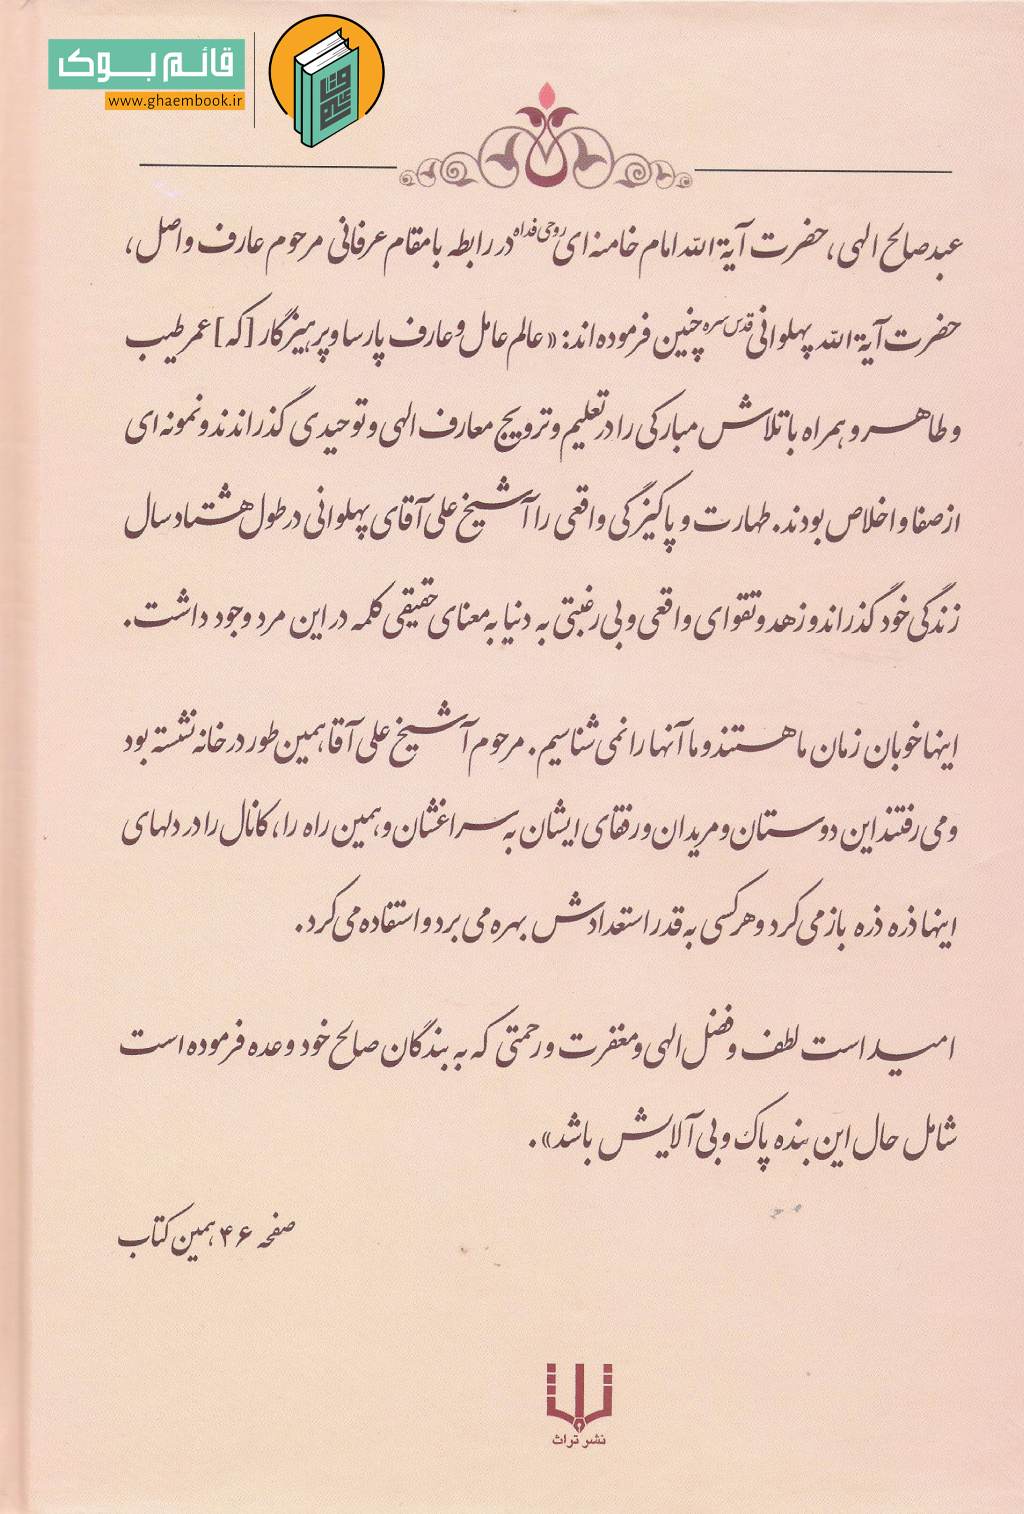 قائم بوک
www.ghaembook.ir
عبد صالح الهی، حضرت آیة الله امام خامنه ای روحی فداه در رابطه با مقام عرفانی مرحوم عارف واصل،
حضرت آیة الله پهلوانی قدس سره چنین فرموده اند: «عالم عامل و عارف پارسا و پرهیزگار [که] عمر طیب
و طاهر و همراه با تلاش مبارکی را در تعلیم و ترویج معارف الهی و توحیدی گذراندند و نمونه ای
از صفا و اخلاص بودند. طهارت و پاکیزگی واقعی را آشیخ علی آقای پهلوانی در طول هشتاد سال
زندگی خود گذراند و زهد و تقوای واقعی و بی رغبتی به دنیا به معنای حقیقی کلمه در این مرد وجود داشت.
اینها خوبان زمان ما هستند و ما آنها را نمی شناسیم. مرحوم آشیخ علی آقا همین طور در خانه نشسته بود
و می رفتند این دوستان و مریدان و رفقای ایشان به سراغشان و همین راه را، کانال را در دلهای
اینها ذره ذره باز می کرد و هر کسی به قدر استعدادش بهره می برد و استفاده می کرد.
امید است لطف و فضل الهی و مغفرت و رحمتی که به بندگان صالح خود وعده فرموده است
شامل حال این بنده پاک و بی آلایش باشد».
صفحه ۴۶ همین کتاب
نشر تراث